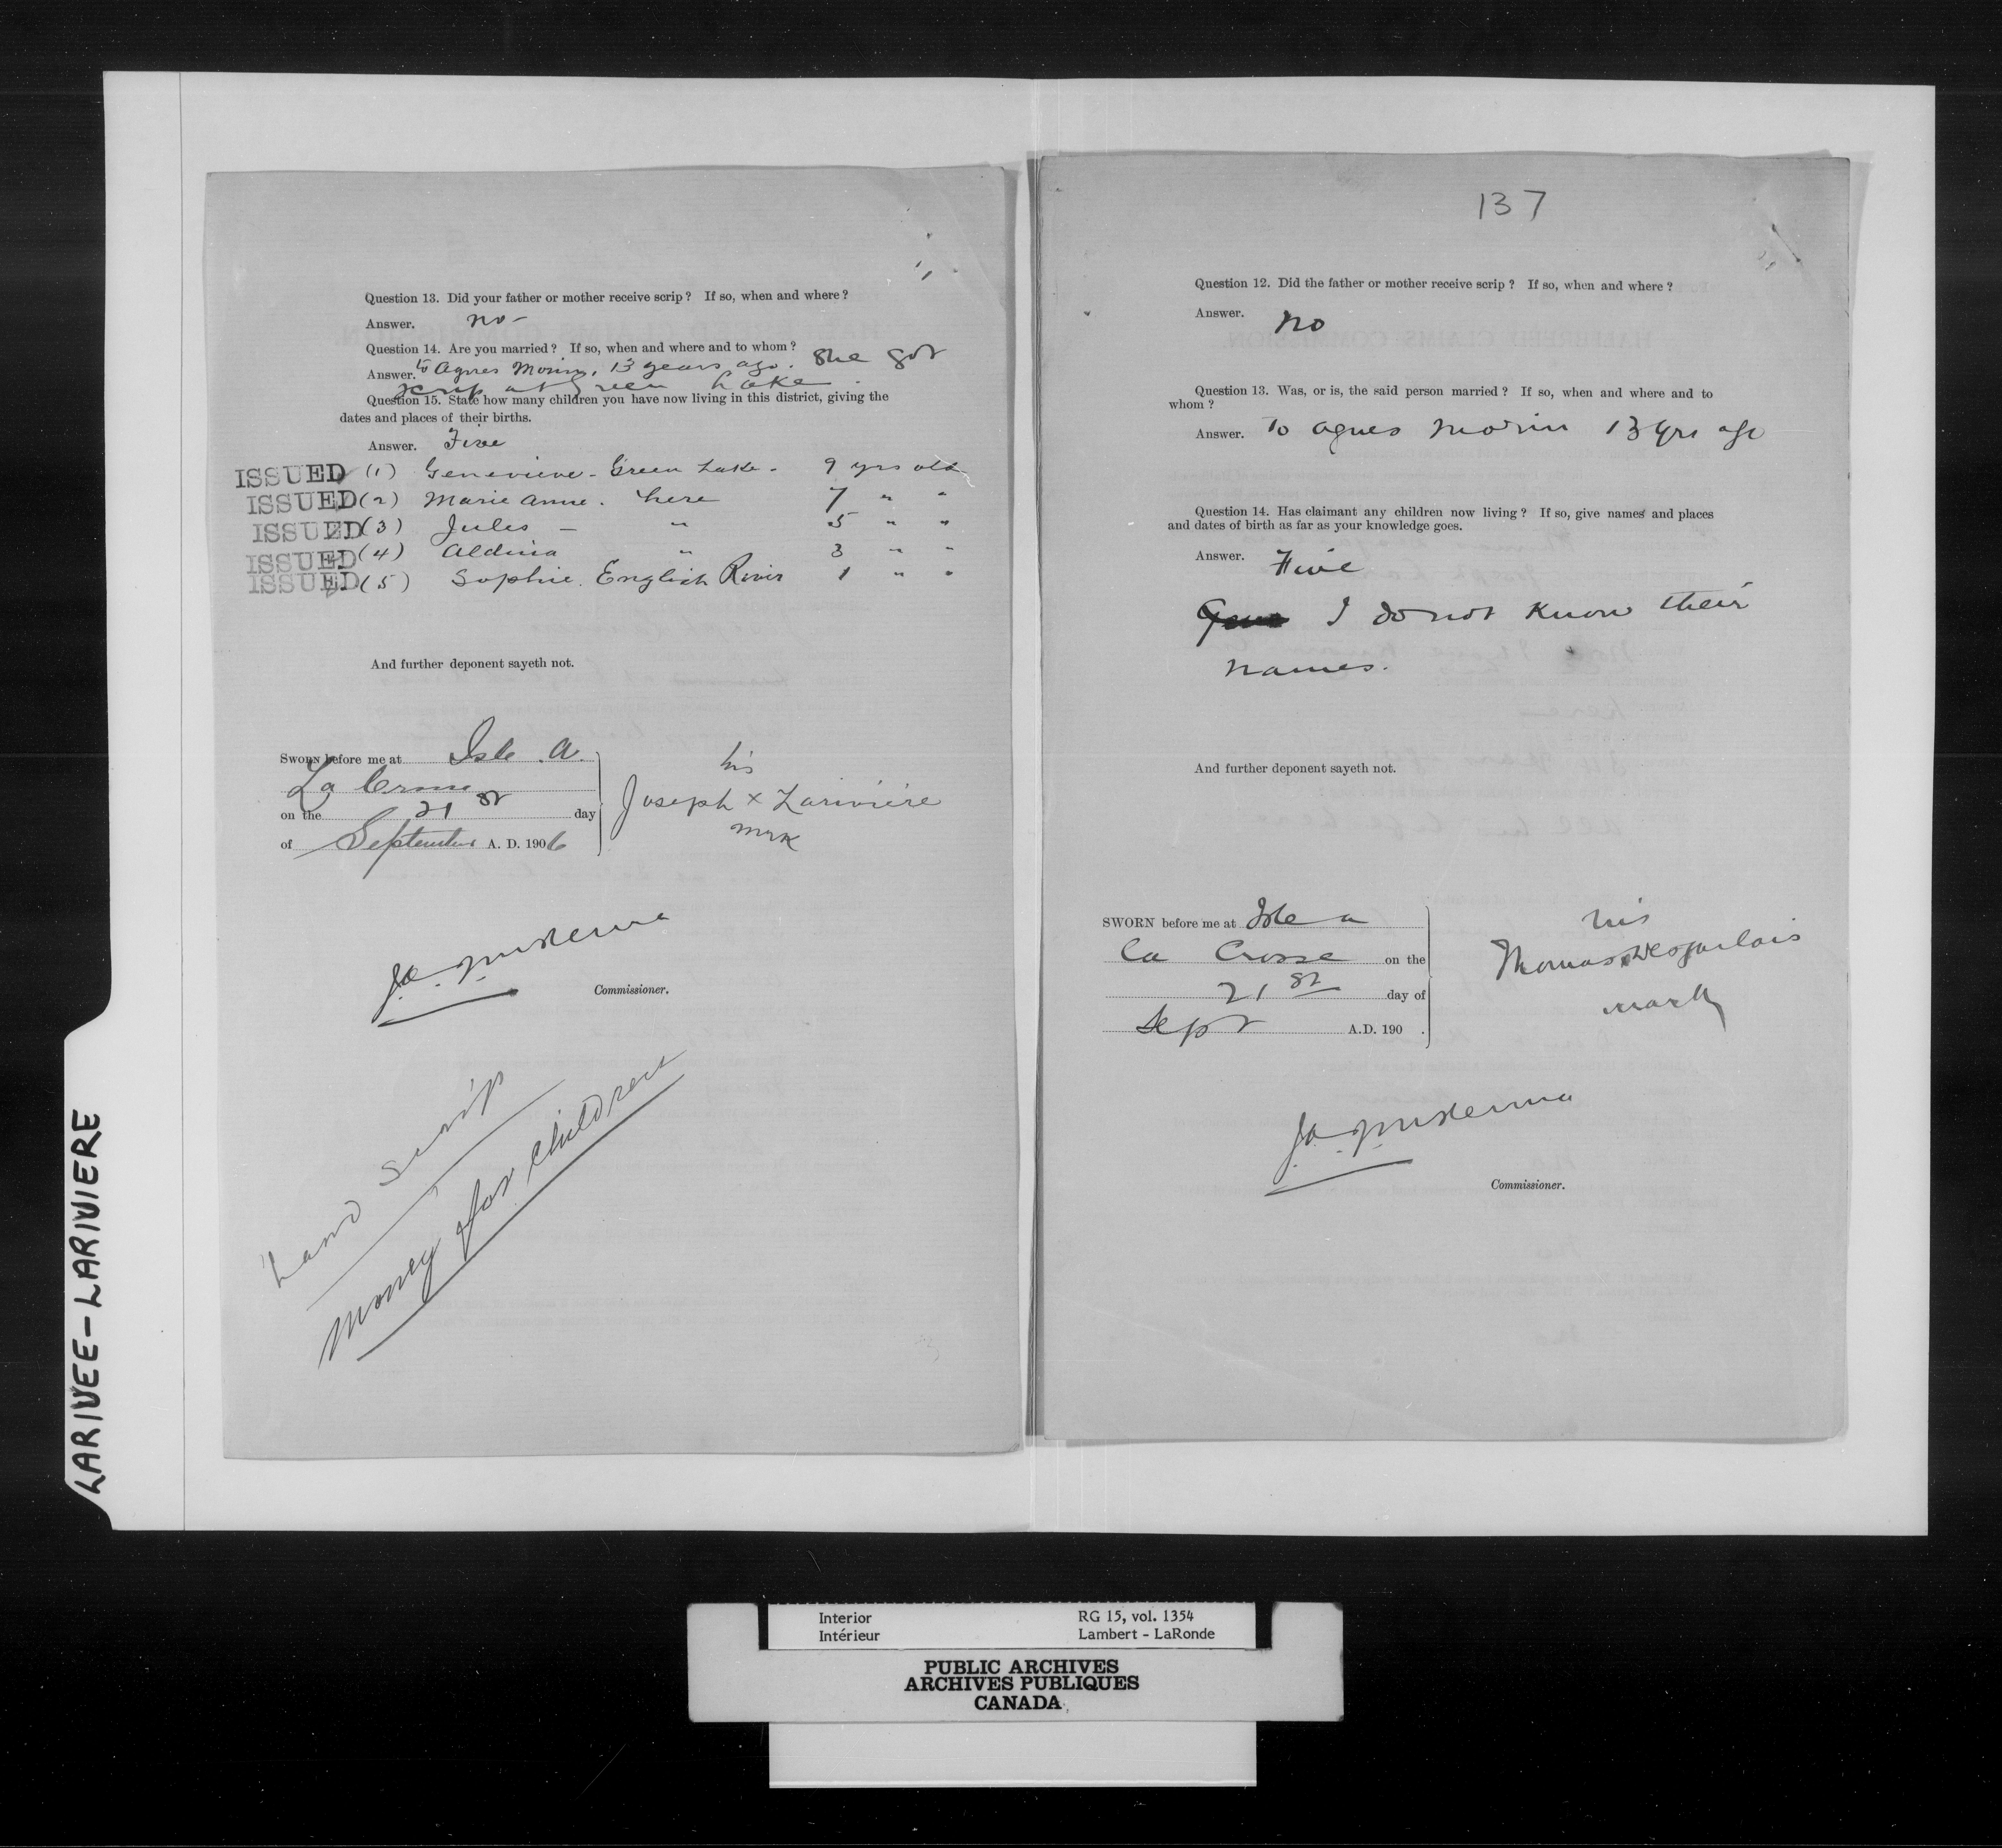 Question 13. Did your father or mother receive scrip? If so, when and where?
Answer. no -
Question 14. Are you married? If so, when and where and to whom?
Answer. to Agnes Morin, 13 years ago. She got
scrip at Green Lake.
Question 15. State how many children you have now living in this district, giving the
dates and places of their births.
Answer. Five
ISSUED (1) Genevieve - Green Lake - 9 yrs old
ISSUED (2) Marie Anne. here 7 " "
ISSUED (3) Jules - " 5 " "
ISSUED (4) Aldina " 3 " "
ISSUED (5) Sophie. English River 1 " "
And further deponent sayeth not.
SWORN before me at Isle A.
La Crosse
on the 21st day
of September A. D. 1906
his
Joseph x Lariviere
mrk
Commissioner.
Land scrip
Money for children
137
Question 12. Did the father or mother receive scrip? If so, when and where?
Answer. No
Question 13. Was, or is, the said person married? If so, when and where and to
whom?
Answer. To Agnes Morin 13 yrs ago
Question 14. Has claimant any children now living? If so, give names and places
and dates of birth as far as your knowledge goes.
Answer. Five
I do not know their
names.
And further deponent sayeth not.
SWORN before me at Isle a
la Crosse on the
21st day of
Sept A.D. 190 .
his
Thomas x Desjarlais
mark
Commissioner.
LARIVEE - LARIVIERE
Interior RG 15, vol. 1354
Intérieur Lambert - LaRonde
PUBLIC ARCHIVES
ARCHIVES PUBLIQUES
CANADA